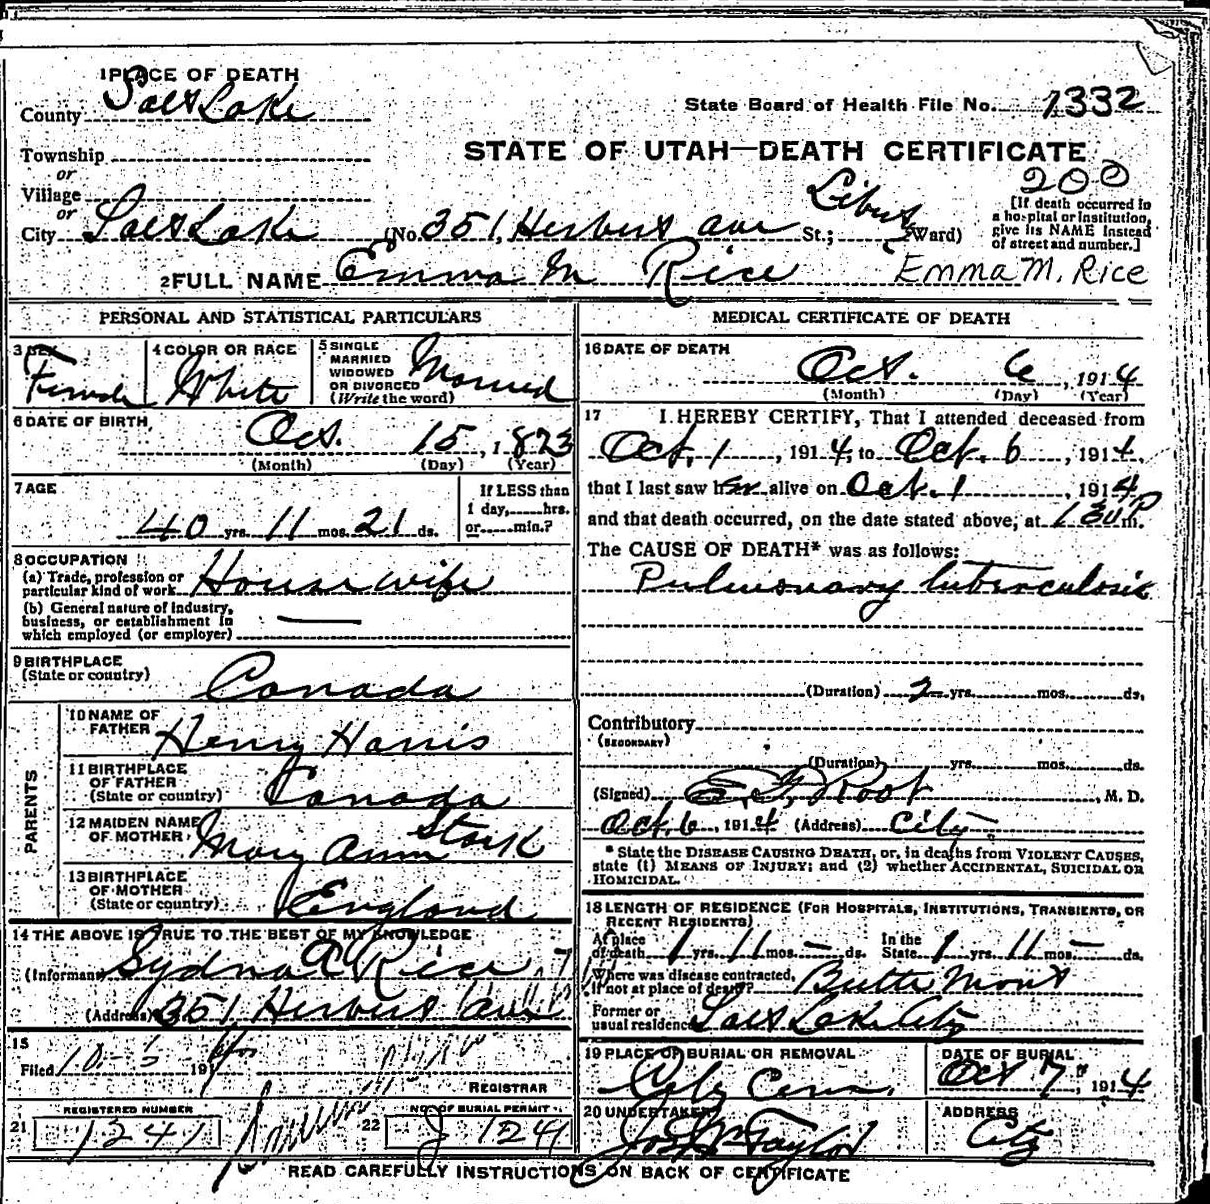 1 PLACE OF DEATH
County Salt Lake
State Board of Health File No. 1332
Township
or
Village
or
STATE OF UTAH—DEATH CERTIFICATE
200
City Salt Lake (No. 351, Herbert ave St.; Ward)
[If death occurred in
a hospital or institution,
give its NAME instead
of street and number.]
2 FULL NAME Emma M Rice
Emma M. Rice
PERSONAL AND STATISTICAL PARTICULARS
3 SEX
Female
4 COLOR OR RACE
White
5 SINGLE
MARRIED
WIDOWED
OR DIVORCED
(Write the word)
Married
6 DATE OF BIRTH
Oct. 15, 1873
(Month) (Day) (Year)
7 AGE
40 yrs. 11 mos. 21 ds.
If LESS than
1 day,......hrs.
or......min.?
8 OCCUPATION
(a) Trade, profession or
particular kind of work Housewife
(b) General nature of Industry,
business, or establishment in
which employed (or employer)
9 BIRTHPLACE
(State or country)
Canada
PARENTS
10 NAME OF
FATHER
Henry Harris
11 BIRTHPLACE
OF FATHER
(State or country)
Canada
12 MAIDEN NAME
OF MOTHER
Mary Ann Stork
13 BIRTHPLACE
OF MOTHER
(State or country)
England
14 THE ABOVE IS TRUE TO THE BEST OF MY KNOWLEDGE
(Informant) Rice
(Address) 351 Herbert ave
15
Filed
191
REGISTRAR
REGISTERED NUMBER
21 1241
NO. OF BURIAL PERMIT
22 J 1241
MEDICAL CERTIFICATE OF DEATH
16 DATE OF DEATH
Oct. 6, 1914
(Month) (Day) (Year)
17 I HEREBY CERTIFY, That I attended deceased from
Oct. 1, 1914, to Oct. 6, 1914,
that I last saw her alive on Oct. 1, 1914
and that death occurred, on the date stated above, at 1 30 P m.
The CAUSE OF DEATH* was as follows:
Pulmonary tuberculosis
(Duration) 2 yrs. mos. ds.
Contributory
(SECONDARY)
(Duration) yrs. mos. ds.
(Signed) Root, M. D.
Oct. 6, 1914 (Address) City
* State the DISEASE CAUSING DEATH, or, in deaths from VIOLENT CAUSES,
state (1) MEANS OF INJURY; and (2) whether ACCIDENTAL, SUICIDAL OR
HOMICIDAL.
18 LENGTH OF RESIDENCE (FOR HOSPITALS, INSTITUTIONS, TRANSIENTS, OR
RECENT RESIDENTS)
At place
of death 1 yrs. 11 mos. – ds.
In the
State 1 yrs. 11 mos. – ds.
Where was disease contracted,
if not at place of death? Butte Mont
Former or
usual residence Salt Lake City
19 PLACE OF BURIAL OR REMOVAL
City Cem.
DATE OF BURIAL
Oct 7, 1914
20 UNDERTAKER
Taylor
ADDRESS
City
READ CAREFULLY INSTRUCTIONS ON BACK OF CERTIFICATE